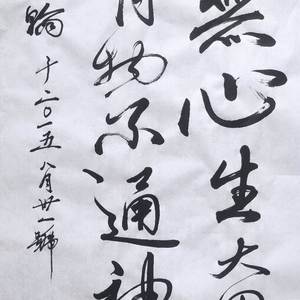 無心生大
有物不通神
翰 十二〇一五八月廿一號